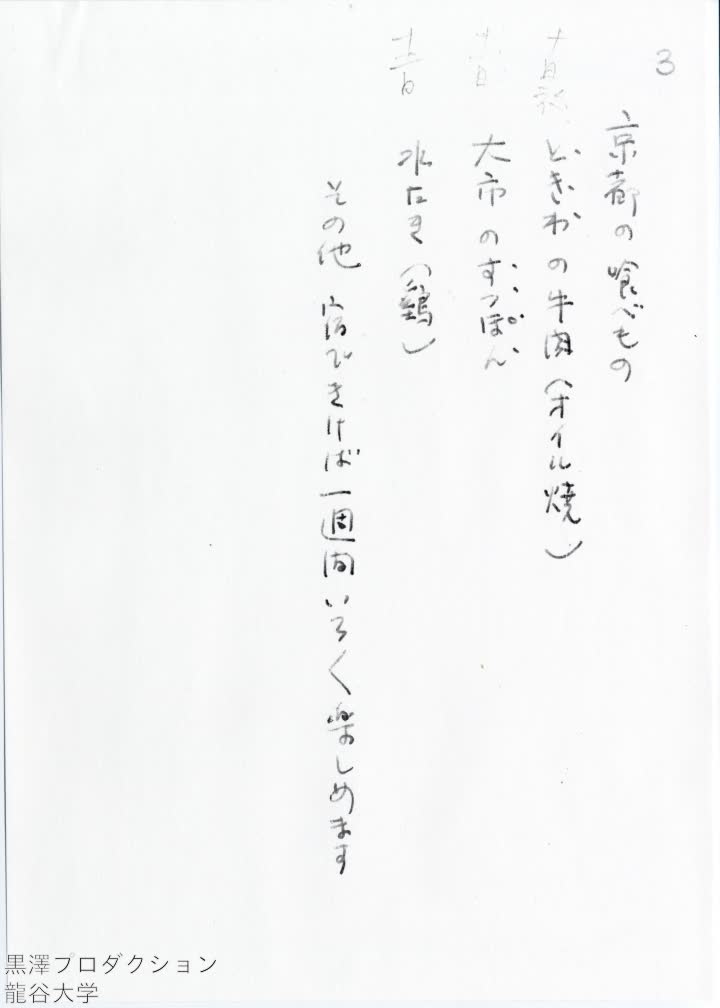 3
京都の喰べもの
ときわの牛肉(オイル焼)
大市のすっぽん
水たき(鶏)
その他 宿できけば一週間いろ〱楽しめます
黒澤プロダクション
龍谷大学